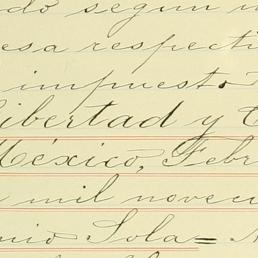 do segun
esa respecti
impuesto
Libertad y C
México, Febr
mil novecie
nio Sola=